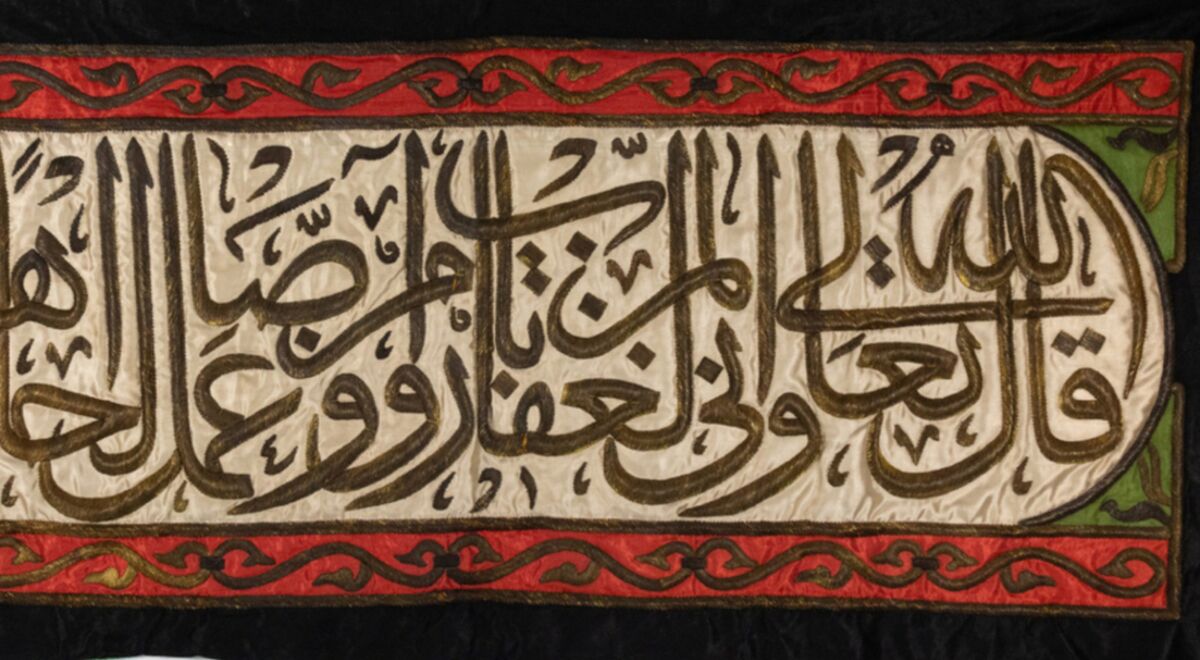 قال الله تعالى وانى لغفار لمن تاب وآمن وعمل صالحا